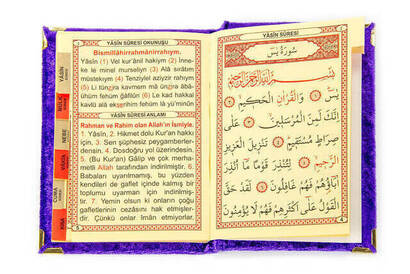 YÂSİN SÛRESİ OKUNUŞU
Bismillâhirrahmânirrahıym.
Yâsîn (1) Vel kur'ânil hakiym (2) İnne-
ke le minel murseliyn (3) Alâ sırâtım
müstekıym (4) Tenziylel aziyzir rahıym
(5) Li tünzira kavmem mâ ünzira âbâ-
ühüm fehüm ğâfilûn (6) Le kad hakkal
kavlü alâ ekserihim fehüm lâ yü'minûn
YÂSÎN SÛRESİ ANLAMI
Rahman ve Rahim olan Allah'ın ismiyle.
1. Yâsîn, 2. Hikmet dolu Kur'an hakkı
için, 3. Sen şüphesiz peygamberler-
densin, 4. Dosdoğru yol üzerindesin.
5. (Bu Kur'an) Gâlip ve çok merha-
metli Allah tarafından indirilmiştir. 6.
Babaları uyarılmamış, bu yüzden
kendileri de gaflet içinde kalmış bir
toplumu uyarman için indirilmiş-
tir. 7. Yemin olsun ki onların çoğu
gafletlerinin cezasını hak etmişler-
dir. Çünkü onlar îmân etmiyorlar,
YÂSÎN
MÜLK
NEBE
VÂKIA
CUMA
KISA
YÂSÎN SÛRESİ
سُورَةُ يٰسٓ
بِسْمِ اللّٰهِ الرَّحْمٰنِ الرَّحِيمِ
يٰسٓ ﴿١﴾ وَالْقُرْاٰنِ الْحَكِيمِ ﴿٢﴾
اِنَّكَ لَمِنَ الْمُرْسَلِينَ ﴿٣﴾ عَلٰى
صِرَاطٍ مُسْتَقِيمٍ ﴿٤﴾ تَنْزِيلَ الْعَزِيزِ
الرَّحِيمِ ﴿٥﴾ لِتُنْذِرَ قَوْمًا مَا اُنْذِرَ
اٰبَاؤُهُمْ فَهُمْ غَافِلُونَ ﴿٦﴾ لَقَدْ حَقَّ
الْقَوْلُ عَلٰى اَكْثَرِهِمْ فَهُمْ لَا يُؤْمِنُونَ